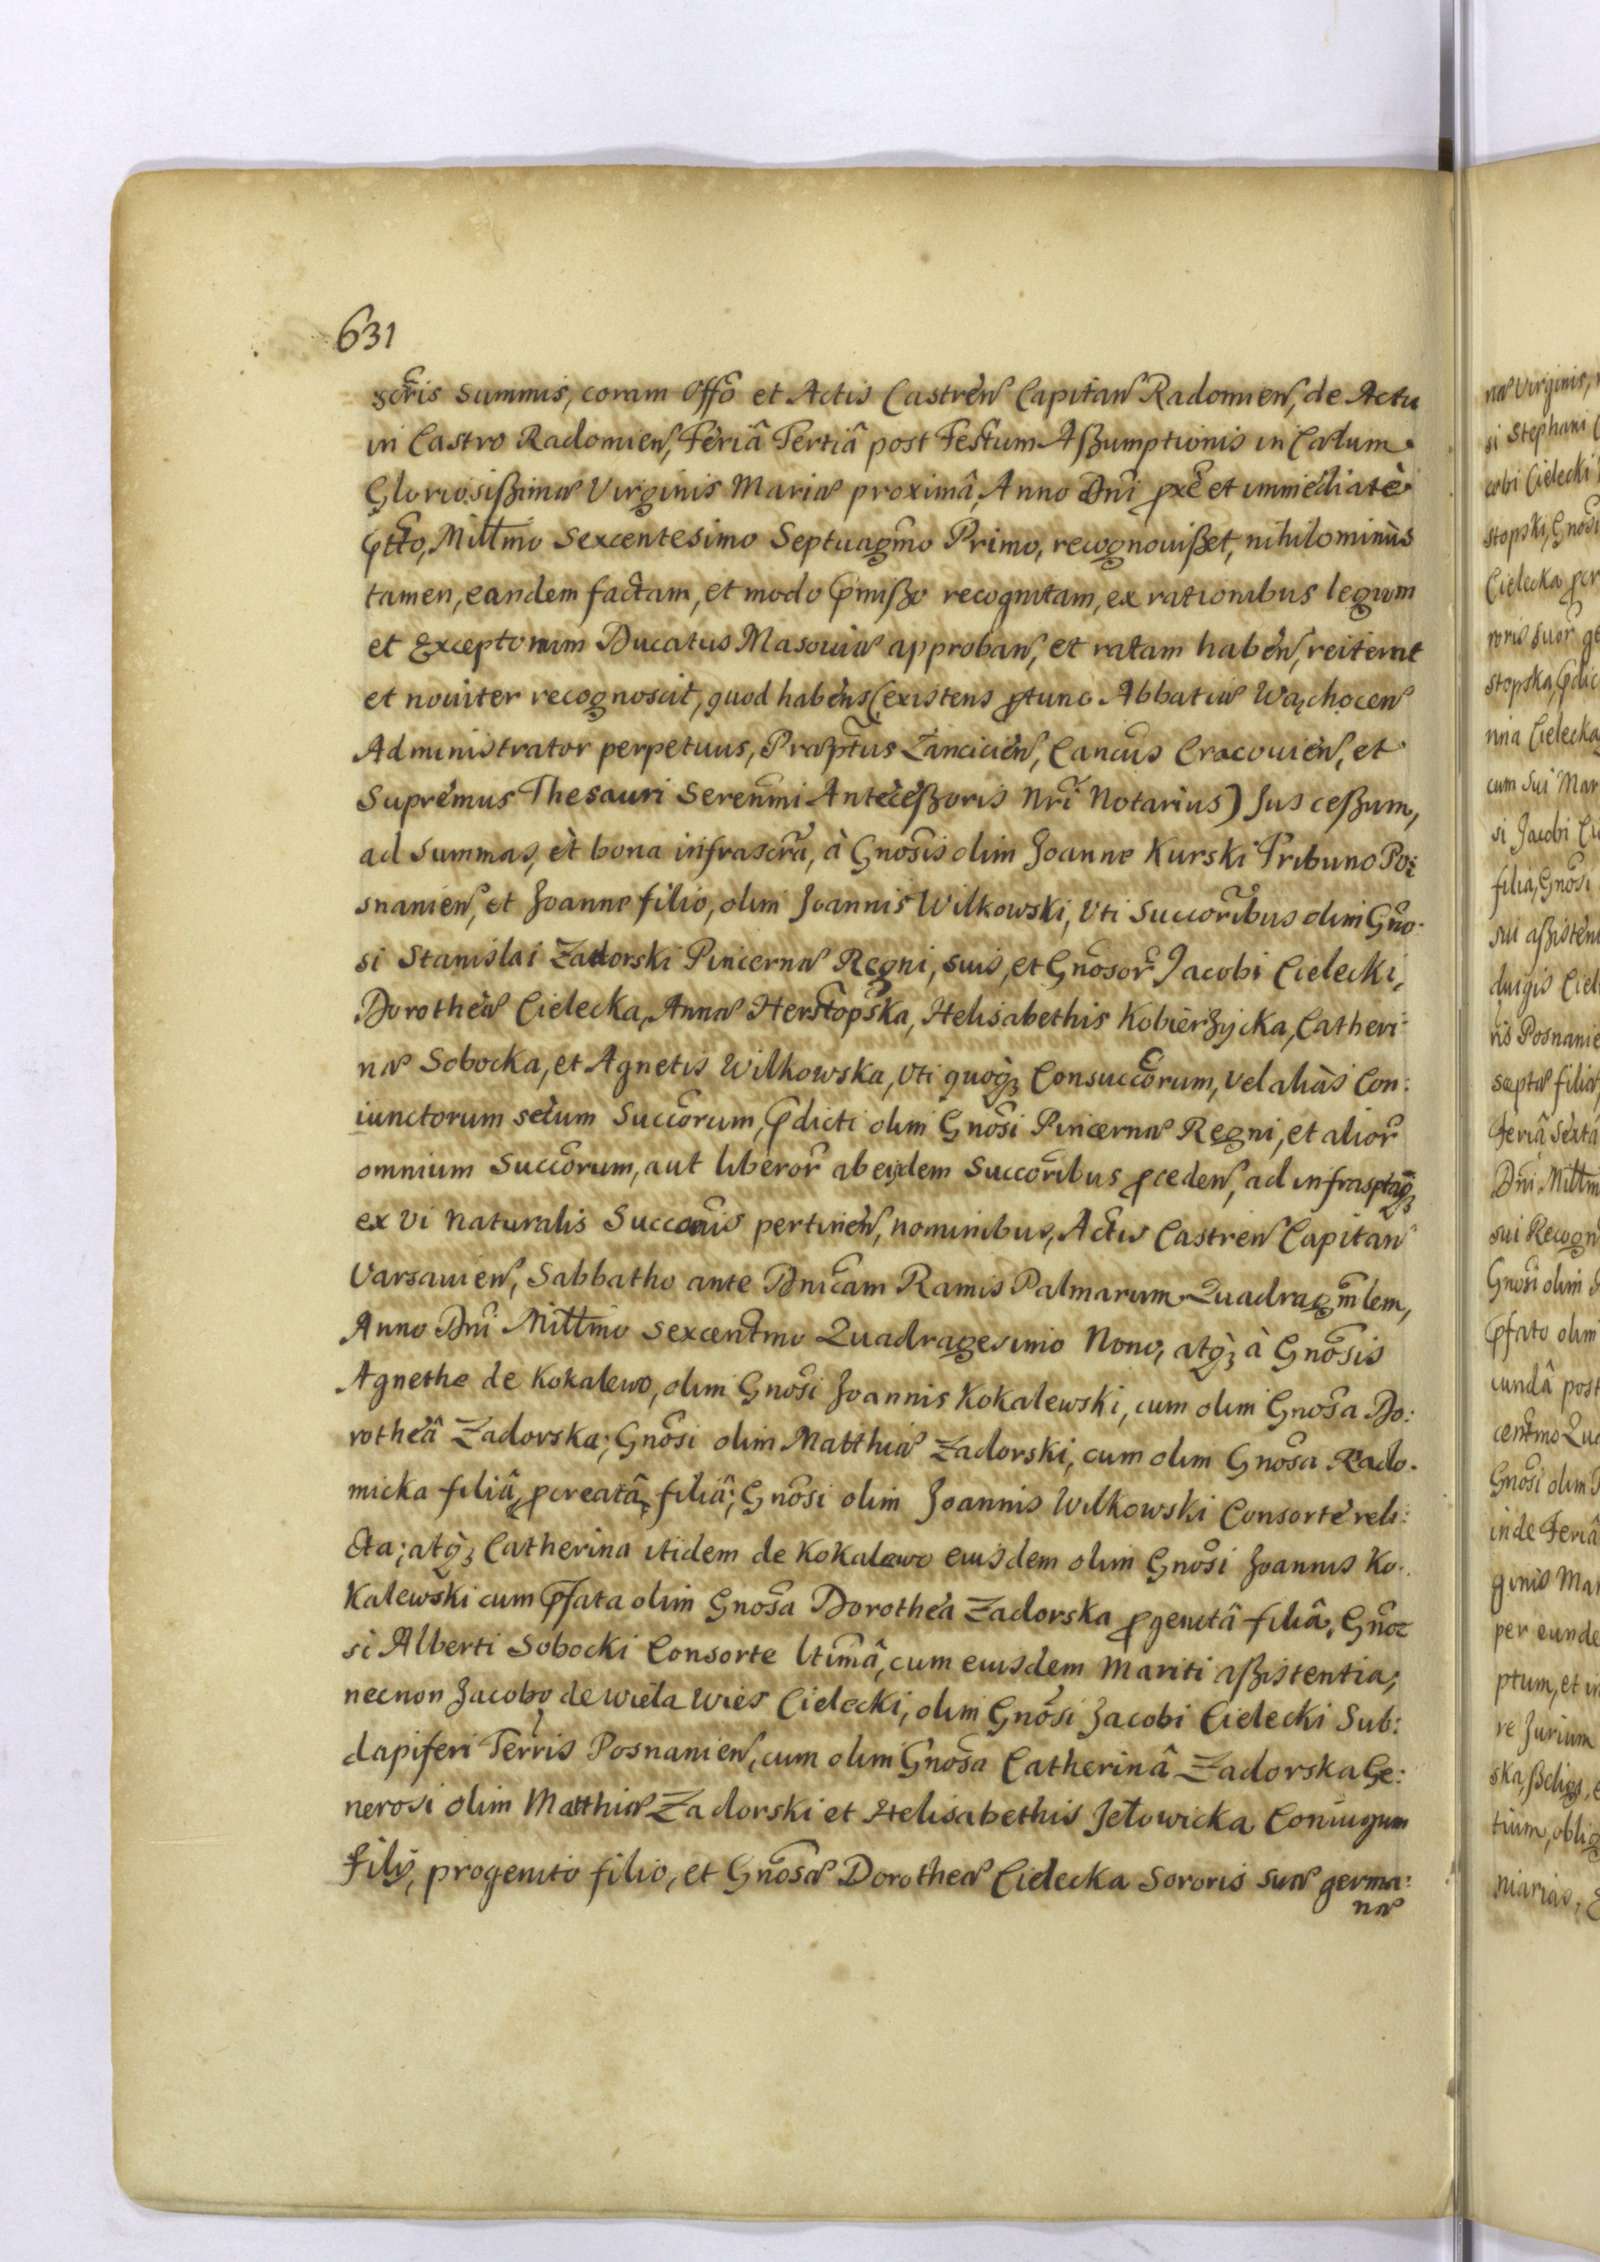 631
scris Summis, coram Offo et Actis Castren Capitan Radomien, de Actu
in Castro Radomien, Feriâ Tertiâ post Festum Aßumptionis in Cælum
Gloriosißimæ Virginis Mariæ proximâ, Anno Dni pxe et immediatè
pttto, Millmo Sexcentesimo Septuagmo Primo, recognovißet, nihilominùs
tamen, eandem factam, et modo pmißo recognitam, ex rationibus legum
et Exceptonum Ducatus Masoviæ approban, et ratam haben, reiterat
et noviter recognoscit, quod habens (existens ptunc Abbatiæ Wąchocen
Administrator perpetuus, Præptus Lancicien, Cancus Cracovien, et
Supremus Thesauri Serenmi Anteceßoris Nri Notarius) Jus ceßum,
ad Summas, et bona infrascra, à Gnosis olim Joanne Kurski Tribuno Po:
snanien, et Joanne filio, olim Joannis Wilkowski, Uti Succoribus olim Gno:
si Stanislai Zadorski Pincernæ Regni, suis, et Gnosor Jacobi Cielecki,
Dorotheæ Cielecka, Annæ Herstopska, Helisabethis Kobierzycka, Catheri:
næ Sobocka, et Agnetis Wilkowska, Uti quoq₃ Consuccorum, vel aliàs Con:
iunctorum secum Succorum, pdicti olim Gnosi Pincernæ Regni, et alior
omnium Succorum, aut liberor ab eijsdem Succoribus pceden, ad infrasptaq₃
ex vi naturalis Succonis pertinen, nominibus, Actis Castren Capitan
Varsavien, Sabbatho ante Dnicam Ramis Palmarum Quadragmlem,
Anno Dni Millmo Sexcentmo Quadragesimo Nono, atq₃ à Gnosis
Agnethe de Kokalewo, olim Gnosi Joannis Kokalewski, cum olim Gnosa Do:
rotheâ Zadorska; Gnosi olim Matthiæ Zadorski, cum olim Gnosa Rado:
micka filiâ, pcreatâ, filiâ; Gnosi olim Joannis Wilkowski Consorte reli:
cta; atq₃ Catherina itidem de Kokalewo eiusdem olim Gnosi Joannis Ko:
kalewski cum pfata olim Gnosa Dorothea Zadorska pgenitâ filiâ, Gno:
si Alberti Sobocki Consorte ltimâ, cum eiusdem Mariti aßistentia;
necnon Jacobo de Wiela Wies Cielecki, olim Gnosi Jacobi Cielecki Sub:
dapiferi Terris Posnanien, cum olim Gnosa Catherinâ Zadorska Ge:
nerosi olim Matthiæ Zadorski et Helisabethis Jełowicka Coniugum
Filij, progenito filio, et Gnosæ Dorotheæ Cielecka Sororis suæ germa:
næ